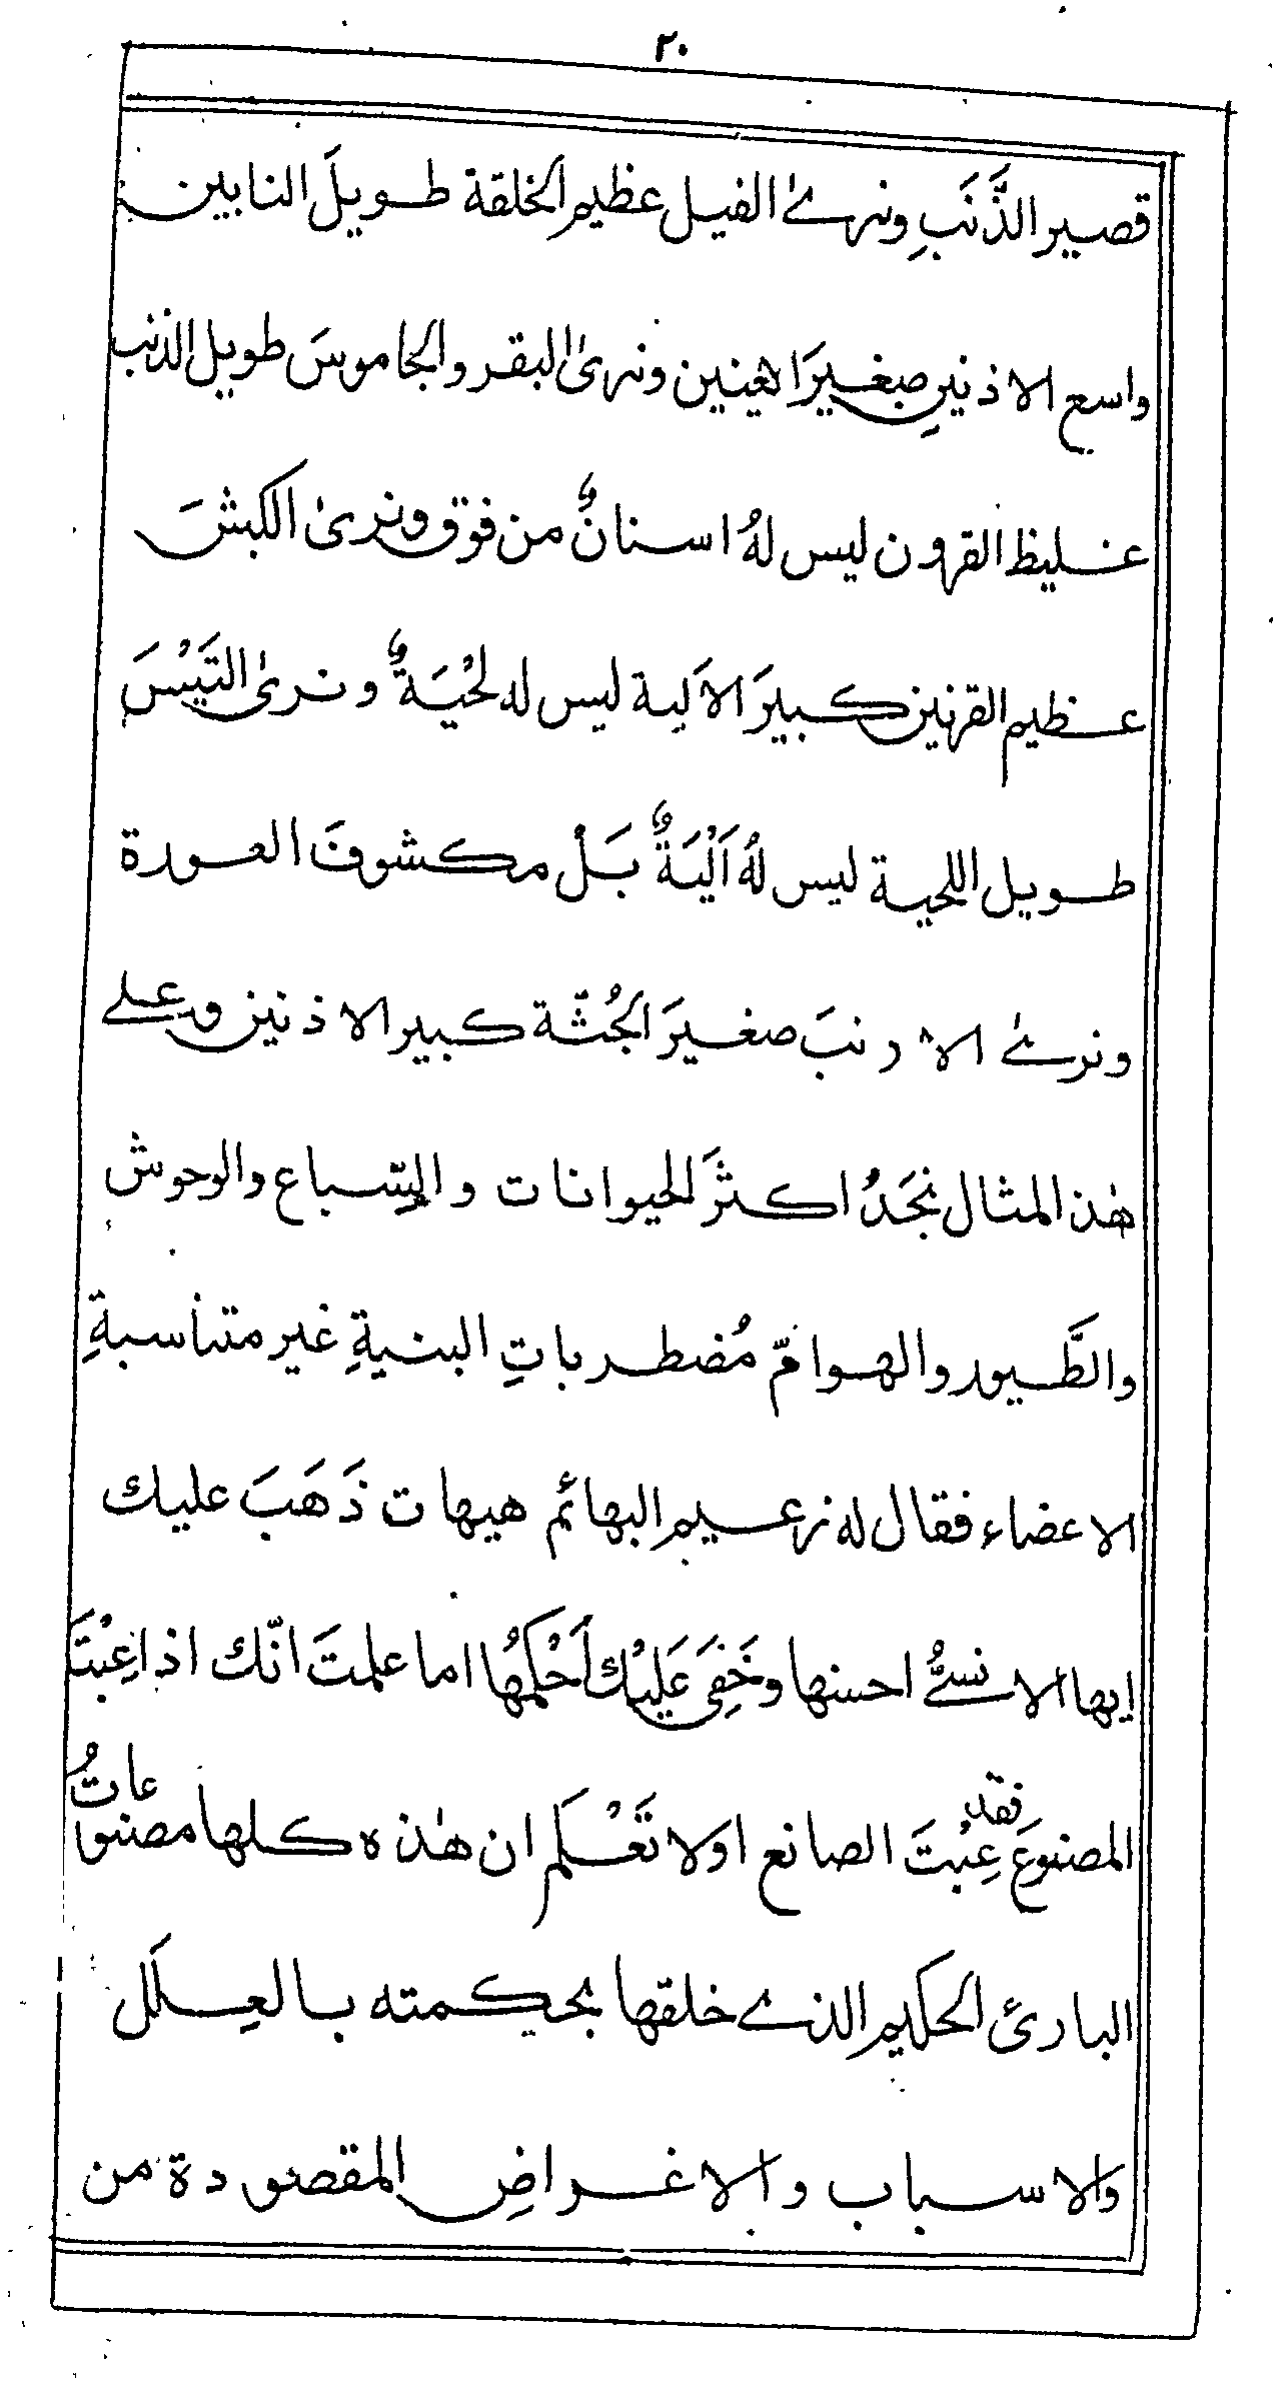 ٢٠
قصير الذَّنَبِ ونرىٰ الفيل عظيم الخلقة طويلَ النابين
واسع الاذنينِ صغيرَ العينين ونرىٰ البقر والجاموسَ طويل الذنب
غليظ القرون ليس لهُ اسنانٌ من فوق ونرىٰ الكبشَ
عظيم القرنين كبيرَ الالَية ليس له لحْيَةٌ ونرىٰ التَيْسَ
طويل اللحية ليس لهُ اَلْيَةٌ بَلْ مكشوفَ العورة
ونرىٰ الارنبَ صغيرَ الجُثّة كبير الاذنين وعلى
هٰذ المثال نجَدُ اكثرَ الحيوانات والسّباع والوحوش
والطَّيور والهوامّ مُضطرباتِ البنيةِ غير متناسبةِ
الاعضاء فقال له زعيم البهائم هيهات ذَهَبَ عليك
ايها الانسىُّ احسنها وخَفِىَ عَليْك اَحْكمُها اما علمتَ انّك اذا عِبْتَ
المصنوعَ فقد عِبْتَ الصانع اولا تَعْلَم ان هٰذه كلها مصنوعاتُ
البارئ الحكيم الذى خلقها بحكمته بالعِلَل
والاسباب والاغراضِ المقصودة من